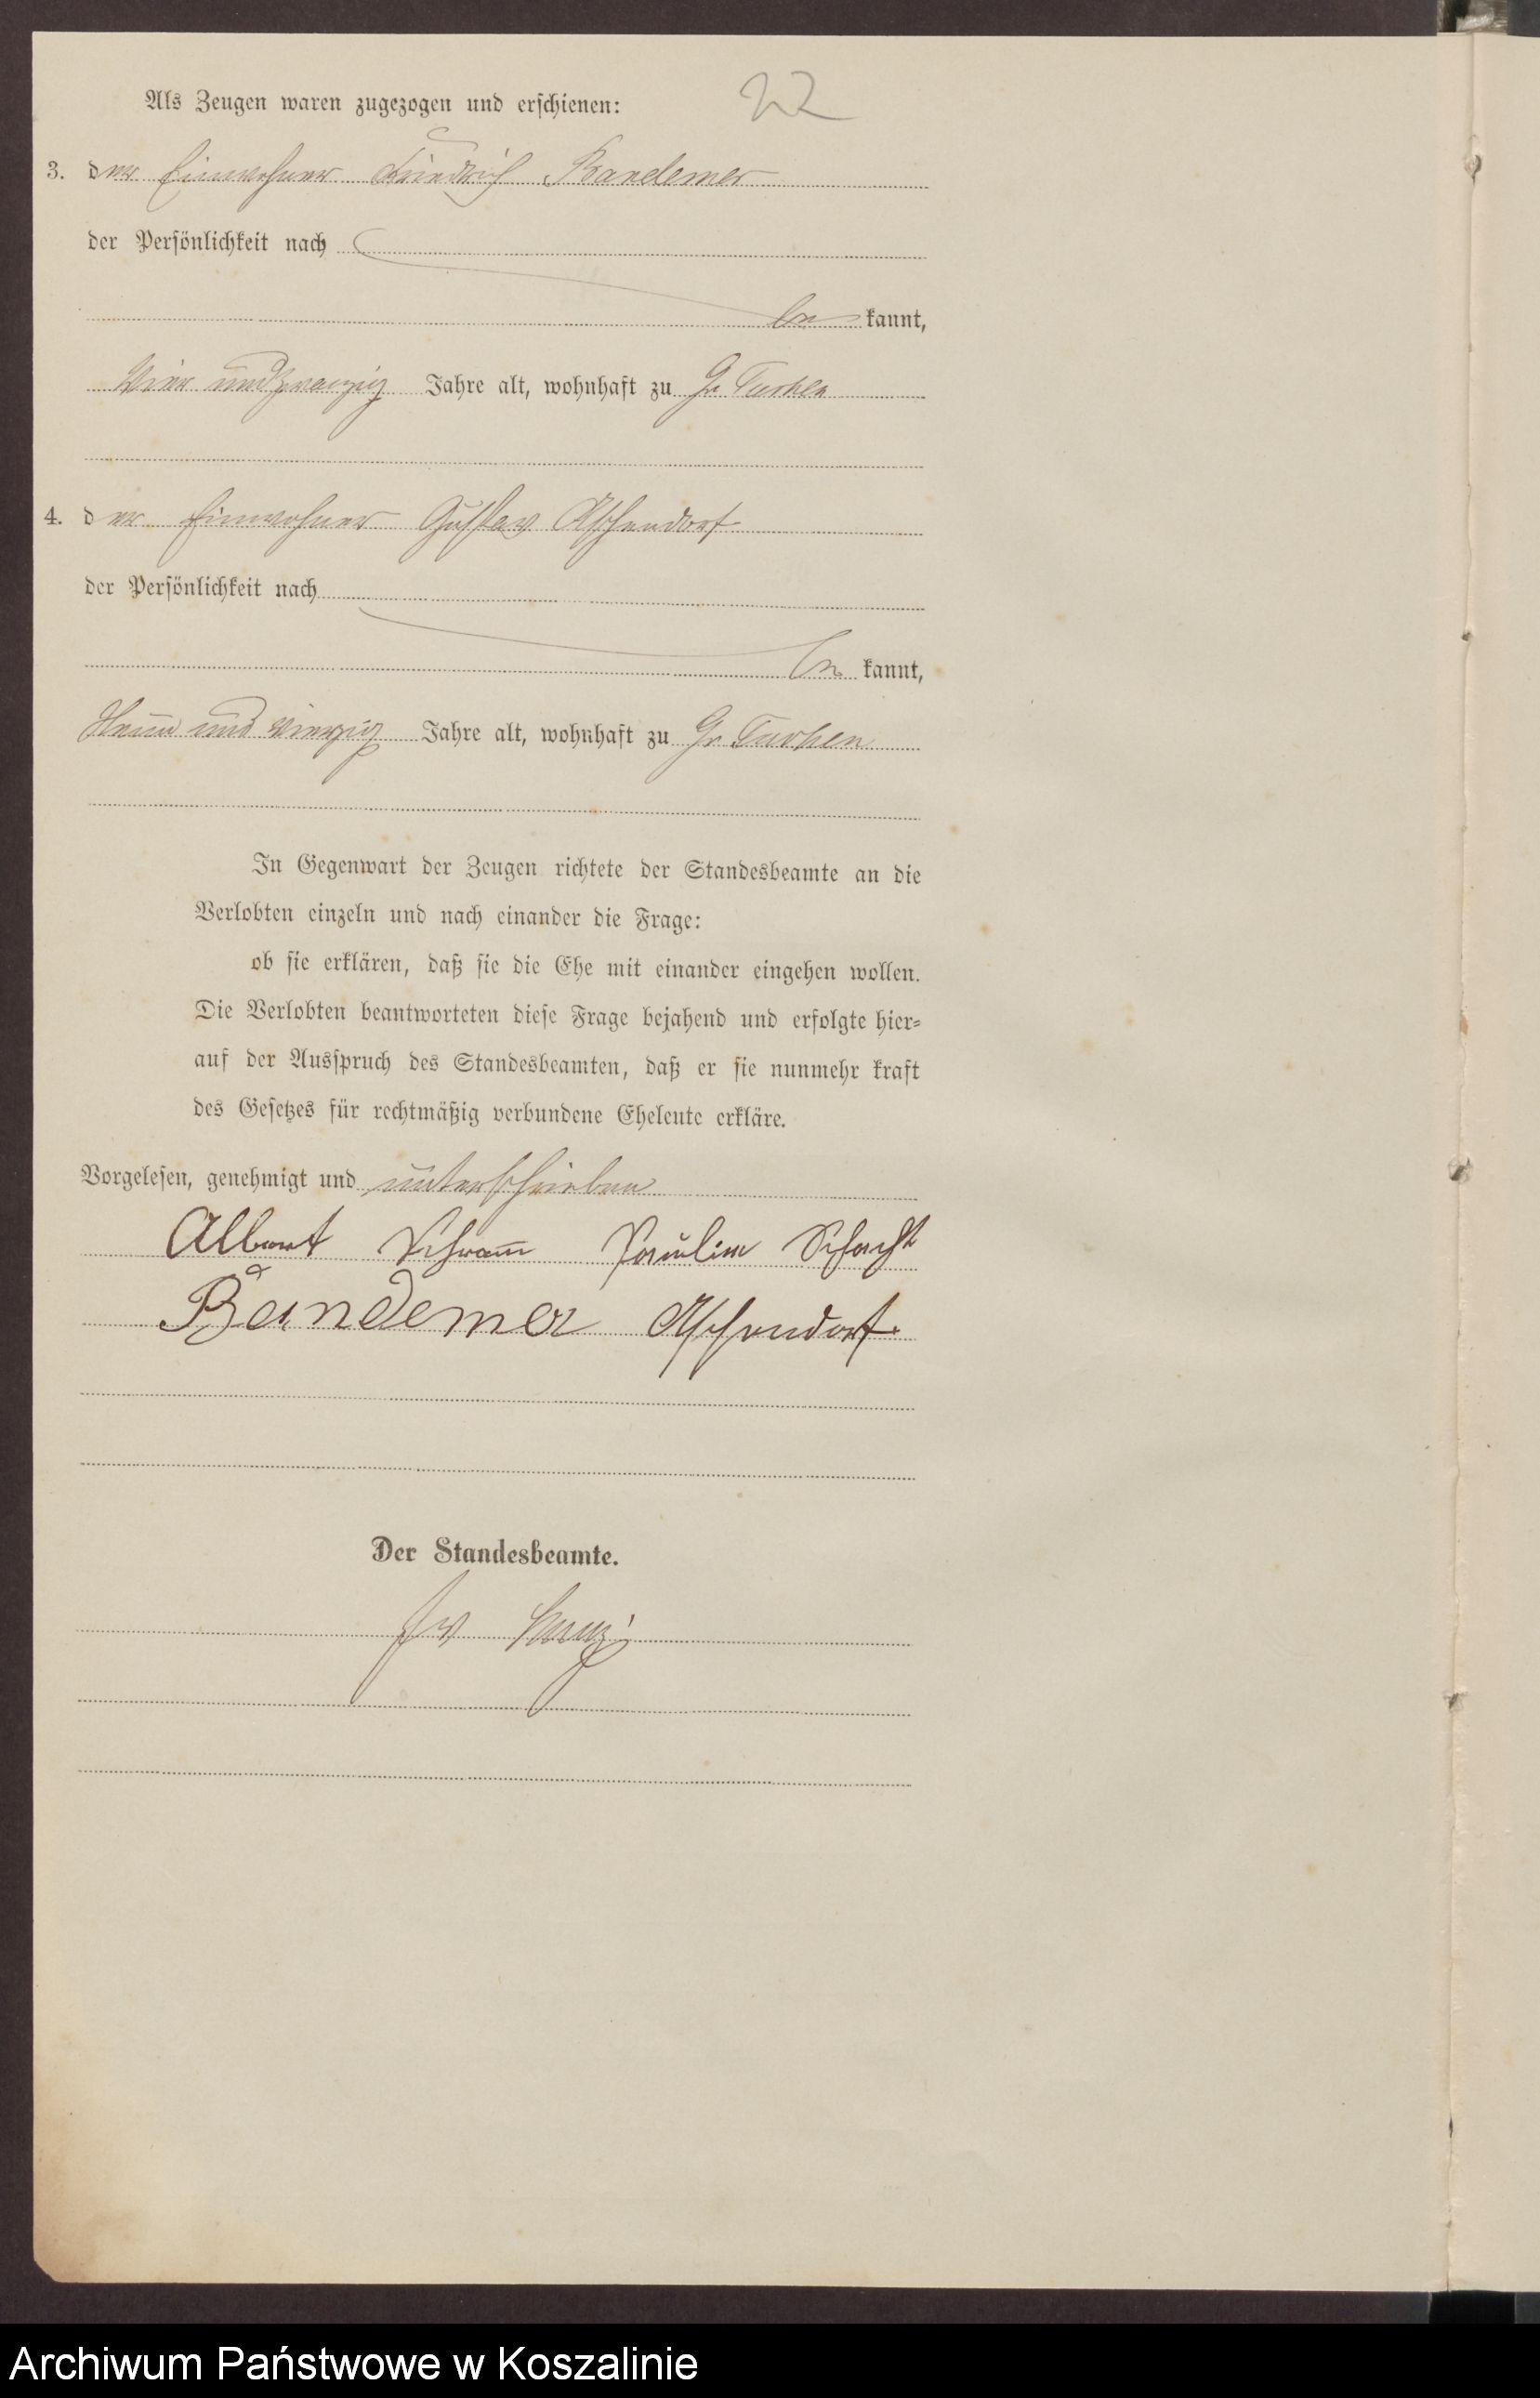 22
Als Zeugen waren zugezogen und erschienen:
3. der Einwohner Friedrich Bandemer
der Persönlichkeit nach
be kannt,
Vier und zwanzig Jahre alt, wohnhaft zu Gr Tuchen
4. der Einwohner Gustav Aschendorf
der Persönlichkeit nach
be kannt,
Neun und vierzig Jahre alt, wohnhaft zu Gr Tuchen
In Gegenwart der Zeugen richtete der Standesbeamte an die
Verlobten einzeln und nach einander die Frage:
ob sie erklären, daß sie die Ehe mit einander eingehen wollen.
Die Verlobten beantworteten diese Frage bejahend und erfolgte hier=
auf der Ausspruch des Standesbeamten, daß er sie nunmehr kraft
des Gesetzes für rechtmäßig verbundene Eheleute erkläre.
Vorgelesen, genehmigt und unterschrieben
Albert Schram̅ Pauline Schacht
Bandemer Aschendorf.
Der Standesbeamte.
Archiwum Państwowe w Koszalinie